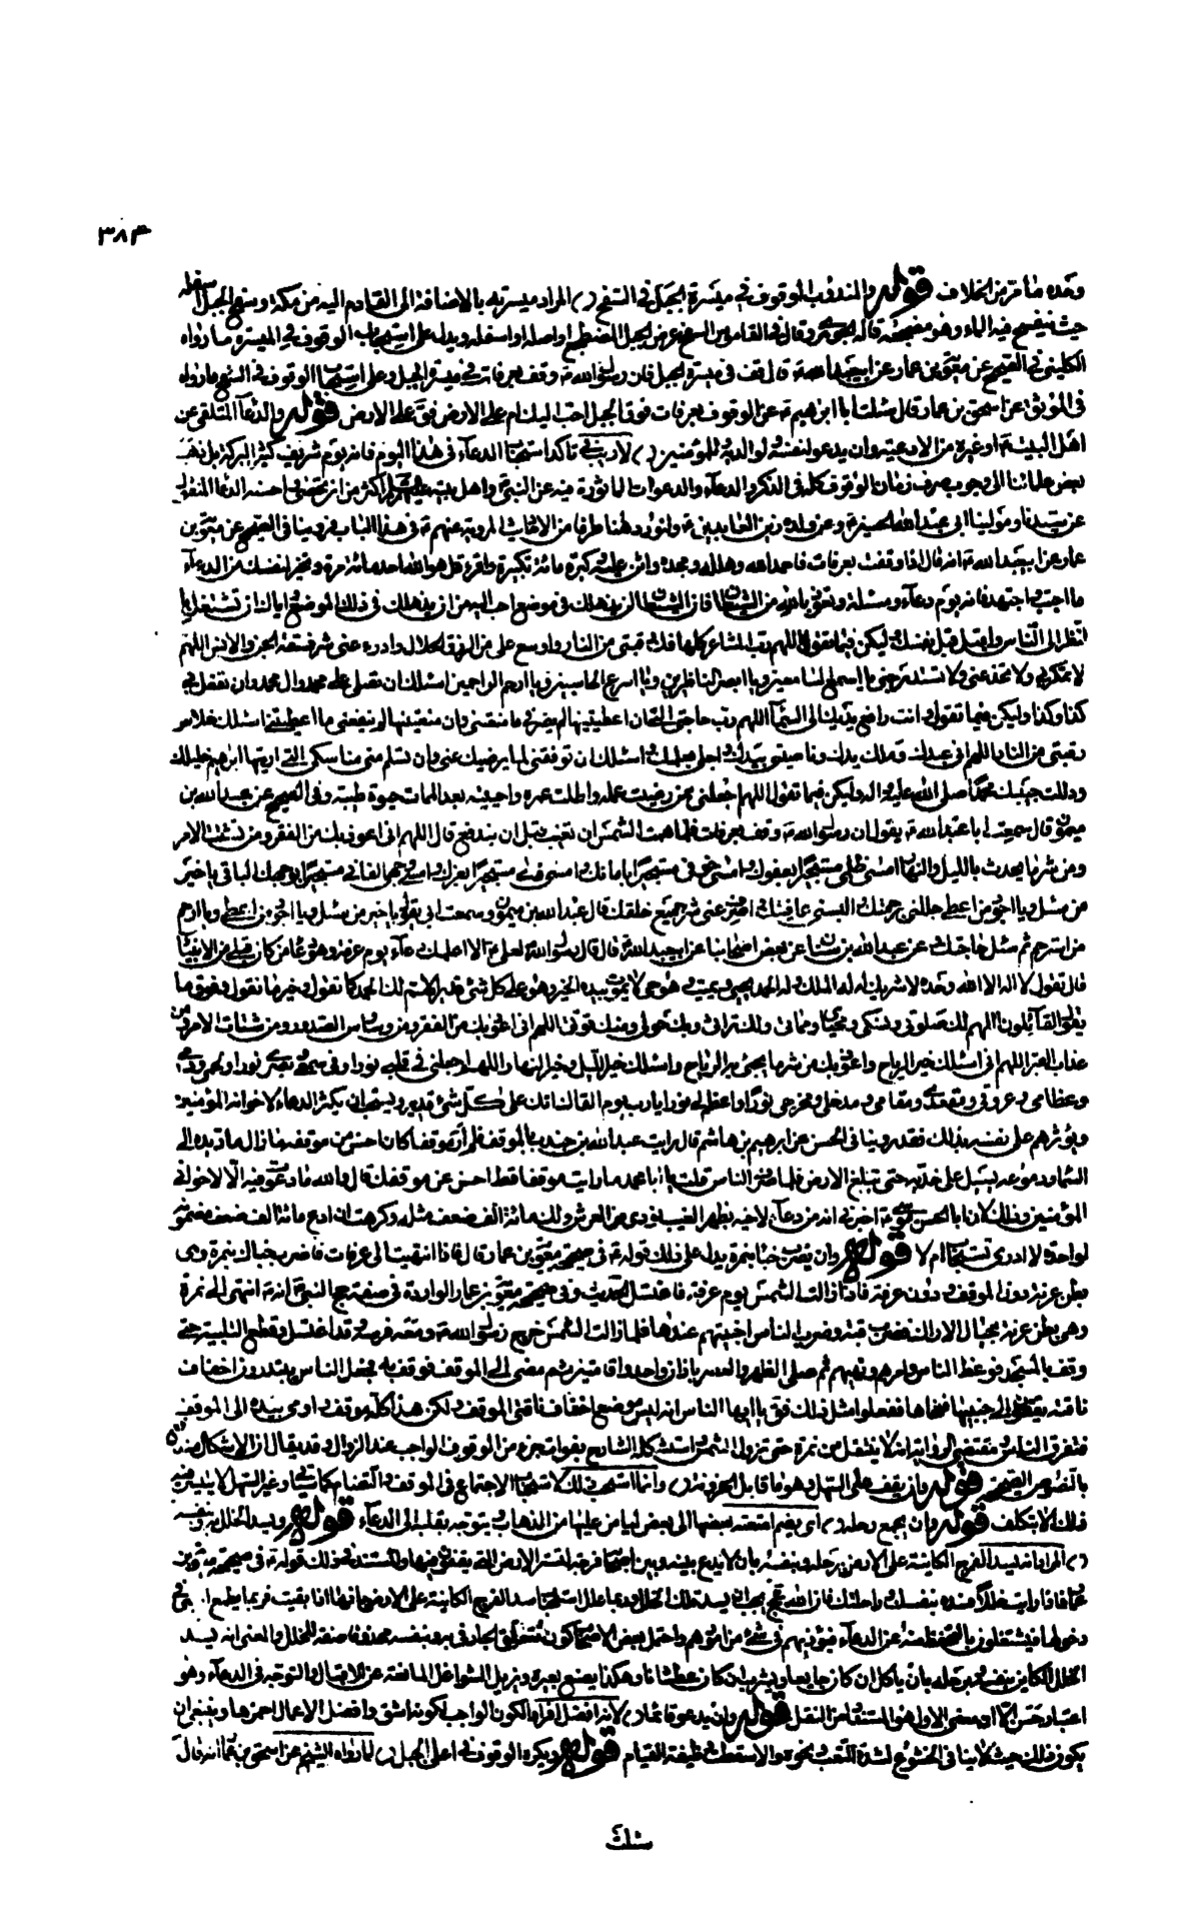 ٣٨٣
وقد تقدم من الخلاف قوله والمندوب الوقوف في ميسرة الجبل في السفح المراد ميسرته بالاضافة الى القادم اليه من مكة وسفح الجبل اسفله
حيث ينسفح فيه الماء وهو مضجعه قاله الجوهري وقال في القاموس السفح عرض الجبل المضطجع او اصله او اسفله ويدل على استحباب الوقوف في الميسرة ما رواه
الكليني في الصحيح عن معوية بن عمار عن ابي عبد الله ع قال قف في ميسرة الجبل فان رسول الله ص وقف بعرفات في ميسرة الجبل وعلى استحباب الوقوف في السفح ما رواه
في الموثق عن اسحق بن عمار قال سئلت ابا ابرهيم ع عن الوقوف بعرفات فوق الجبل احب اليك ام على الارض فق على الارض قوله والدعآء المتلقى عن
اهل البيت ع او غيره من الادعية وان يدعو لنفسه ولوالديه وللمؤمنين لا ريب في تاكد استحباب الدعآء في هذا اليوم فانه يوم شريف كثير البركة بل ذهب
بعض علمائنا الى وجوب صرف زمان الوقوف كله في الذكر والدعآء والدعوات الماثورة فيه عن النبي ص واهل بيته عليهم السلام اكثر من ان تحصى واحسنه الدعاء المنقول
عن سيدنا ومولينا ابي عبد الله الحسين ع وعن ولده زين العابدين ع ولنورد هنا طرفا من الاحاديث المروية عنهم ع في هذا الباب فروينا في الصحيح عن معوية بن
عمار عن ابي عبد الله ع انه قال اذا وقفت بعرفات فاحمد الله وهلله ومجده واثن عليه وكبره مائة تكبيرة واقرء قل هو الله احد مائة مرة وتخير لنفسك من الدعآء
ما احببت واجتهد فانه يوم دعآء ومسئلة وتعوذ بالله من الشيطان فان الشيطان لن يذهلك في موضع احب اليه من ان يذهلك في ذلك الموضع واياك ان تشتغل با
لنظر الى الناس واقبل قبل نفسك وليكن فيما تقول اللهم رب المشاعر كلها فك رقبتي من النار واوسع علي من الرزق الحلال وادرء عني شر فسقة الجن والانس اللهم
لا تمكر بي ولا تخدعني ولا تستدرجني يا اسمع السامعين ويا ابصر الناظرين ويا اسرع الحاسبين ويا ارحم الراحمين اسئلك ان تصلي على محمد وال محمد وان تفعل بي
كذا وكذا وليكن فيما تقول وانت رافع يديك الى السمآء اللهم رب حاجتي التي ان اعطيتنيها لم يضرني ما منعتني وان منعتنيها لم ينفعني ما اعطيتني اسئلك خلاص
رقبتي من النار اللهم اني عبدك وملك يدك وناصيتي بيدك واجلي بعلمك اسئلك ان توفقني لما يرضيك عني وان تسلم مني مناسكي التي اريتها ابرهيم خليلك
ودللت حبيبك محمدا صلى الله عليه واله وليكن فيما تقول اللهم اجعلني ممن رضيت عمله واطلت عمره واحييته بعد الممات حيوة طيبة وفي الصحيح عن عبد الله بن
ميمون قال سمعت ابا عبد الله ع يقول ان رسول الله ص وقف بعرفات فلما همت الشمس ان تغيب قبل ان يندفع قال اللهم اني اعوذ بك من الفقر ومن تشتت الامر
ومن شر ما يحدث بالليل والنهار امسى ظلمي مستجيرا بعفوك وامسى خوفي مستجيرا بامانك وامسى ذلي مستجيرا بعزك وامسى وجهي الفاني مستجيرا بوجهك الباقي يا خير
من سئل ويا اجود من اعطى جللني برحمتك والبسني عافيتك واصرف عني شر جميع خلقك قال عبد الله بن ميمون وسمعت ابي يقول يا خير من سئل ويا اجود من اعطى ويا ارحم
من استرحم ثم سئل حاجتك عن عبد الله بن سنان عن بعض اصحابنا عن ابي عبد الله ع قال قال رسول الله ص لعلي ع الا اعلمك دعآء يوم عرفة وهو دعآء من كان قبلي من الانبيآء
قال تقول لا اله الا الله وحده لا شريك له له الملك وله الحمد يحيي ويميت وهو حي لا يموت بيده الخير وهو على كل شئ قدير اللهم لك الحمد كما تقول وخير ما نقول وفوق ما
يقول القائلون اللهم لك صلوتي ونسكي ومحياي ومماتي ولك تراثي وبك حولي ومنك قوتي اللهم اني اعوذ بك من الفقر ومن وسواس الصدور ومن شتات الامر ومن
عذاب القبر اللهم اني اسئلك خير الرياح واعوذ بك من شر ما يجئ به الرياح واسئلك خير الليل وخير النهار اللهم اجعل في قلبي نورا وفي سمعي وبصري نورا ولحمي ودمي
وعظامي وعروقي ومقعدي ومقامي ومدخلي ومخرجي نورا واعظم لي نورا يا رب يوم القاك انك على كل شئ قدير ويستحب ان يكثر الدعآء لاخوانه المؤمنين
ويؤثرهم على نفسه بذلك فقد روينا في الحسن عن ابرهيم بن هاشم قال رايت عبد الله بن جندب بالموقف فلم ار موقفا كان احسن من موقفه ما زال مادا يده الى
السماء ودموعه تسيل على خديه حتى تبلغ الارض فلما صرف الناس قلت يا ابا محمد ما رايت موقفا قط احسن من موقفك قال والله ما دعوت فيه الا لاخواني
المؤمنين وذلك لان ابا الحسن موسى ع اخبرني انه من دعا لاخيه بظهر الغيب نودي من العرش ولك مائة الف ضعف مثله وكرهت ان ادع مائة الف ضعف مضمونة
لواحدة لا ادري تستجاب ام لا قوله وان يضرب خباه بنمرة يدل على ذلك قوله ع في صحيحة معوية بن عمار قال فاذا انتهيت الى عرفات فاضرب خباك بنمرة وهي
بطن عرنة دون الموقف ودون عرفة فاذا زالت الشمس يوم عرفة فاغتسل الحديث وفي صحيحة معوية بن عمار الواردة في صفة حج النبي ص انه ص انتهى الى نمرة
وهي بطن عرنة بحيال الاراك فضرب قبته وضرب الناس اخبيتهم عندها فلما زالت الشمس خرج رسول الله ص ومعه فرسه وقد اغتسل وقطع التلبية حتى
وقف بالمسجد فوعظ الناس وامرهم ونهيهم ثم صلى الظهر والعصر باذان واحد واقامتين ثم مضى الى الموقف فوقف به فجعل الناس يبتدرون اخفاف
ناقته يقفون الى جنبها فنحاها ففعلوا مثل ذلك فق يا ايها الناس انه ليس موضع اخفاف ناقتي الموقف ولكن هذا كله موقف واومى بيده الى الموقف
فتفرق الناس ومقتضى الرواية انه لا ينتقل من نمرة حتى تزول الشمس واستشكله الشارح بفوات جزء من الوقوف الواجب عند الزوال وقد يقال ان الاشكال مند فع
بالنصوص الصحيحة قوله وان يقف على السهل وهو ما قابل الحزن وانما استحب ذلك لاستحباب الاجتماع في الموقف والتضام كما سياتي وغير السهل لا يتيسر فيه
ذلك الا بتكلف قوله وان يجمع رحله اي يضم امتعته بعضها الى بعض ليامن عليها من الذهاب ويتوجه بقلبه الى الدعآء قوله ويسد الخلل به وبنفسه
المراد انه يسد الفرج الكائنة على الارض برحله وبنفسه بان لا يدع بينه وبين اصحابه فرجة لتستر الارض التي يقفون فيها والمستند في ذلك قوله ع في صحيحة معوية بن
عمار فاذا رايت خللا فسده بنفسك وراحلتك فان الله عز وجل يحب ان تسد تلك الخلال وربما علل استحباب سد الفرج الكائنة على الارض بانها اذا بقيت فربما يطمع اجنبي في
دخولها فيشتغلون بالتحفظ منه عن الدعآء فيؤذيهم في شئ من امورهم واحتمل بعض الاصحاب كون متعلق الجار في به وبنفسه محذوفا صفة للخلل والمعنى انه يسد
الخلل الكاين بنفسه وبرحله بان ياكل ان كان جايعا ويشرب ان كان عطشانا وهكذا يصنع ببعيره ويزيل الشواغل المانعة عن الاقبال والتوجه في الدعآء وهو
اعتبار حسن الا ان المعنى الاول هو المستفاد من النقل قوله وان يدعو قائما لانه افضل افراد الكون الواجب لكونه اشق وافضل الاعمال احمزها وينبغي ان
يكون ذلك حيث لا ينافي الخشوع لشدة التعب ونحوه والا سقطت وظيفة القيام قوله ويكره الوقوف في اعلى الجبل لما رواه الشيخ عن اسحق بن عمار انه قال
سئلت